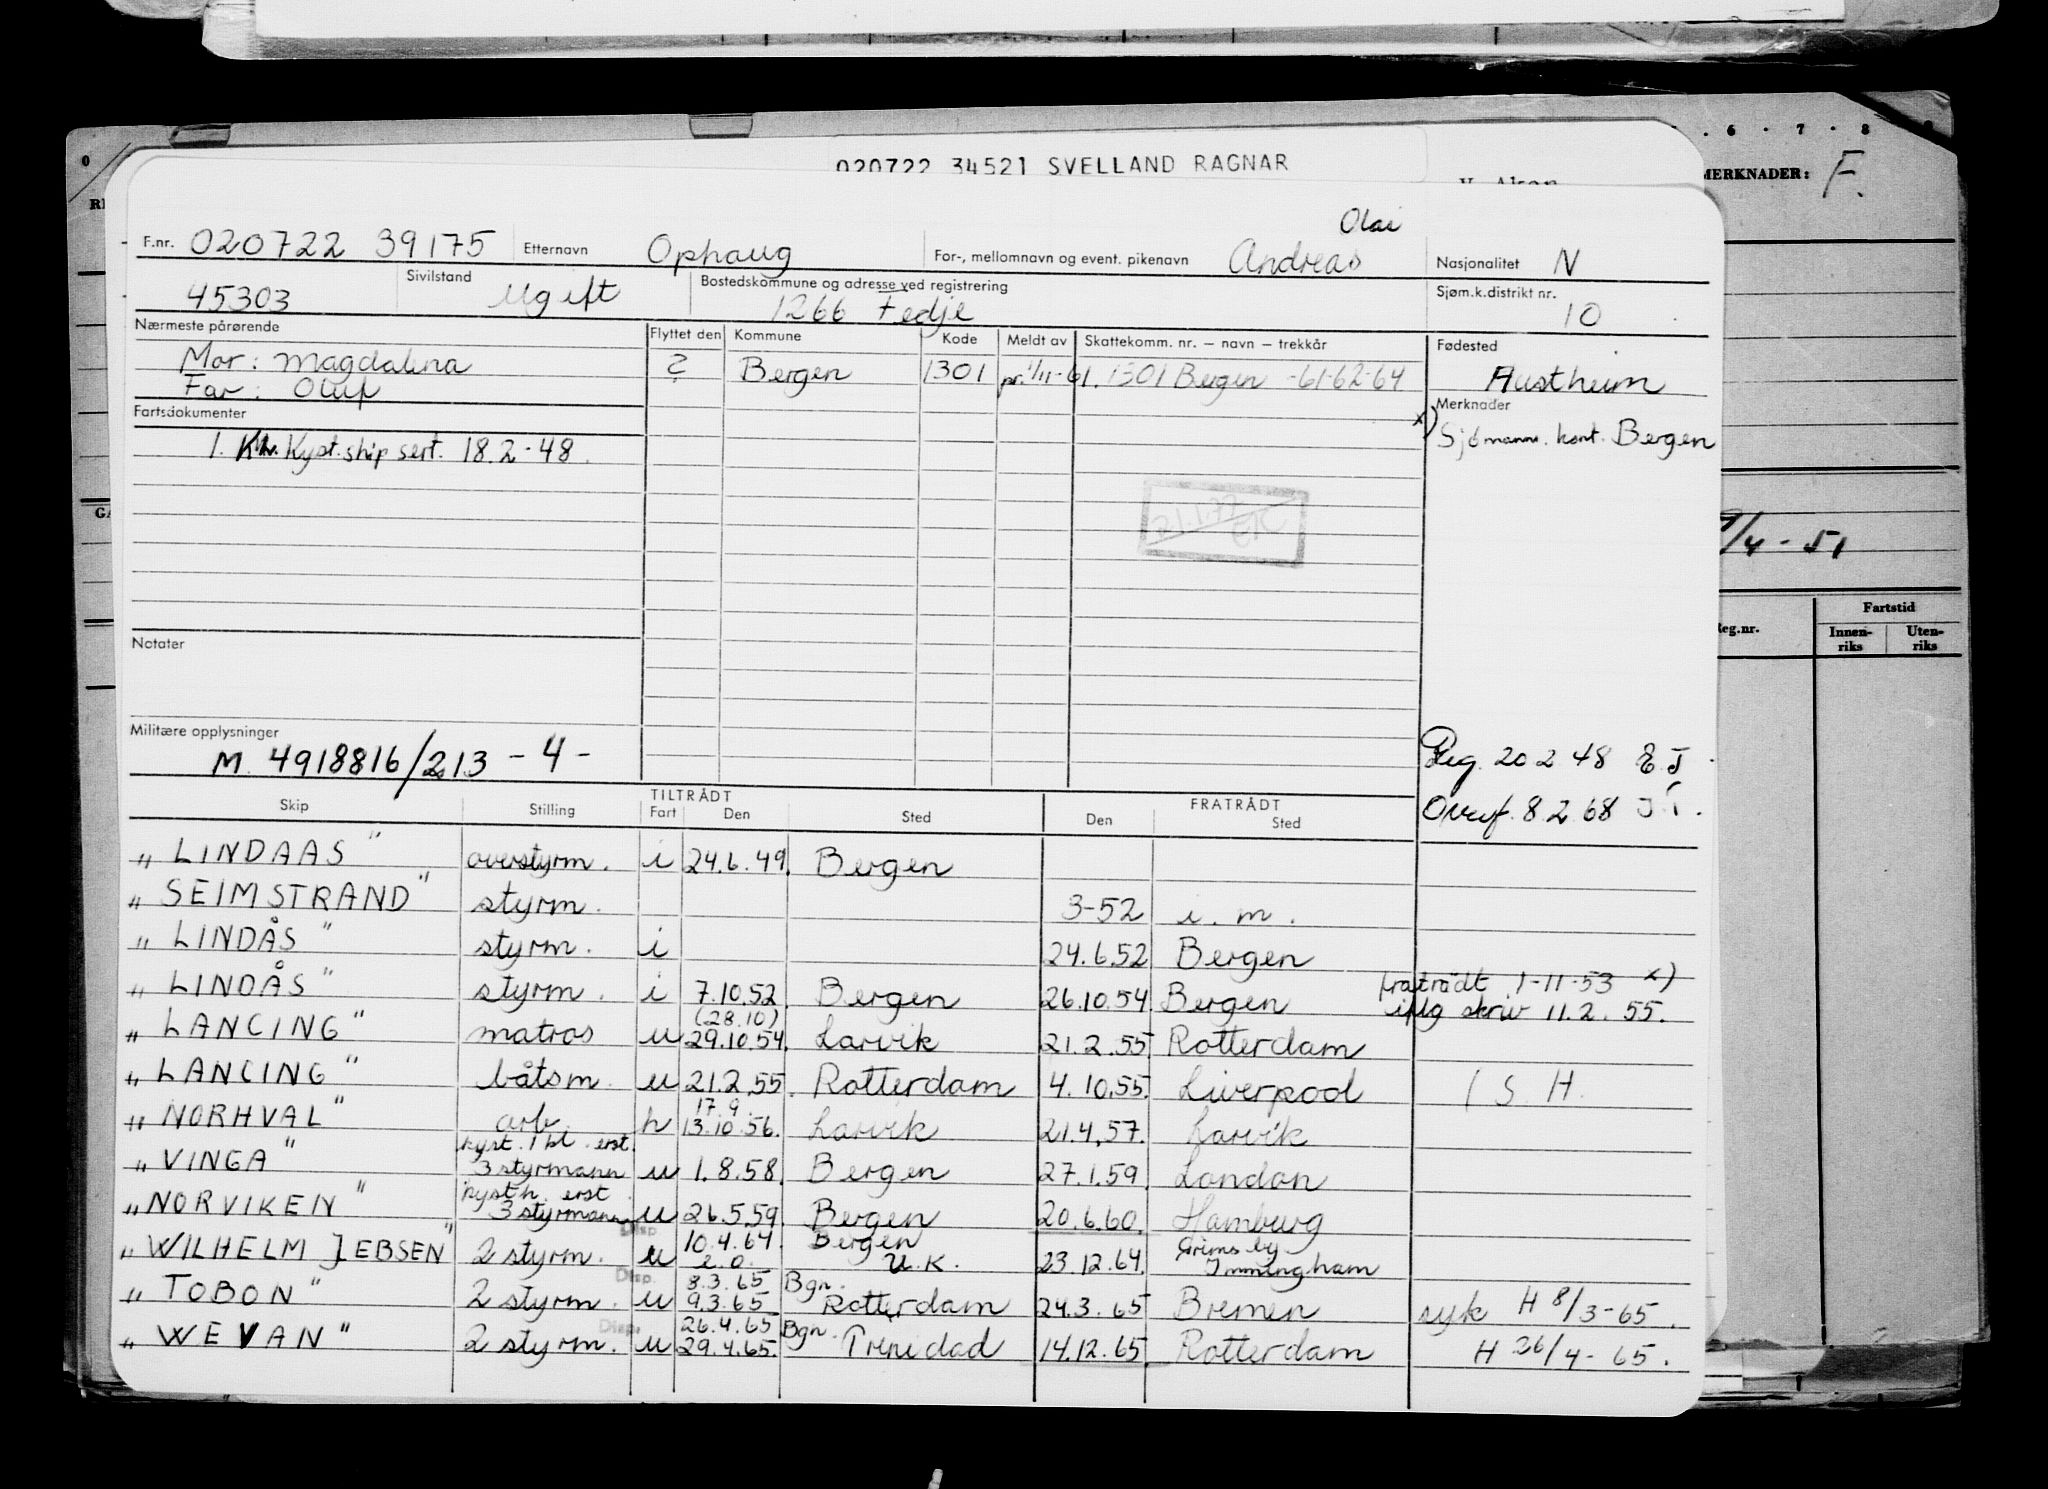 020722 34521 SVELLAND RAGNAR
6 · 7 · 8
MERKNADER: F.
Olai
F.nr. 020722 39175 Etternavn Ophaug For-, mellomnavn og event. pikenavn Andreas Nasjonalitet N
45303 Sivilstand Ugift Bostedskommune og adresse ved registrering 1266 Fedje Sjøm.k.distrikt nr. 10
Nærmeste pårørende Flyttet den Kommune Kode Meldt av Skattekomm. nr. – navn – trekkår Fødested
Mor: Magdalena ? Bergen 1301 pr. 1/11-61. 1301 Bergen -61-62-64 Austheim
Far: Oluf
Fartsdokumenter Merknader
1. Kl. Kyst.skip sert. 18.2-48. x) Sjømanns. kont. Bergen
21.1.77
EK
9/4 - 51
Fartstid
Reg.nr. Innen-riks Uten-riks
Notater
Militære opplysninger
M. 4918816/213 - 4 -
Reg. 20 2 48 E J
Overf. 8.2.68
TILTRÅDT FRATRÅDT
Skip Stilling Fart Den Sted Den Sted
„ LINDAAS " overstyrm. i 24.6.49. Bergen
„ SEIMSTRAND" styrm. 3-52 i. m.
„ LINDÅS " styrm. i 24.6.52 Bergen
„ LINDÅS " styrm. i 7.10.52. Bergen 26.10.54 Bergen fratrådt 1-11-53 x)
iflg skriv 11.2. 55.
(28.10)
„ LANCING " matros u 29.10.54. Larvik 21.2.55. Rotterdam
„ LANCING " båtsm. u 21.2.55. Rotterdam 4.10.55. Liverpool / S. H.
17.9.
„ NORHVAL " arb. h 13.10.56. Larvik 21.4.57. Larvik
kyst. 1 kl. erst.
„ VINGA " 3 styrmann u 1.8.58. Bergen 27.1.59. London
kysth. erst.
„ NORVIKEN " 3 styrmann u 26.5.59. Bergen 20.6.60. Hamburg
Disp. 10.4.64 Bergen Grimsby-
„ WILHELM JEBSEN" 2 styrm. u e.o. U.K. 23.12.64. Immingham
Disp. 8.3.65 Bgn.
„ TOBON " 2 styrm. u 9.3.65 Rotterdam 24.3.65 Bremen syk H 8/3-65.
Disp. 26.4.65 Bgn.
„ WEVAN " 2 styrm. u 29.4.65. Trinidad 14.12.65. Rotterdam H 26/4-65.